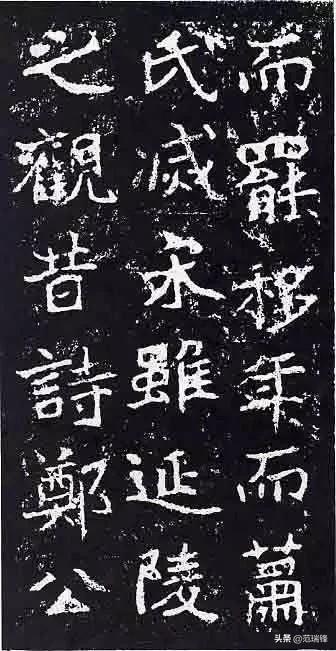 而罷移年而蕭
氏滅宋雖延陵
之觀昔詩鄭公
头条 @范瑞锋